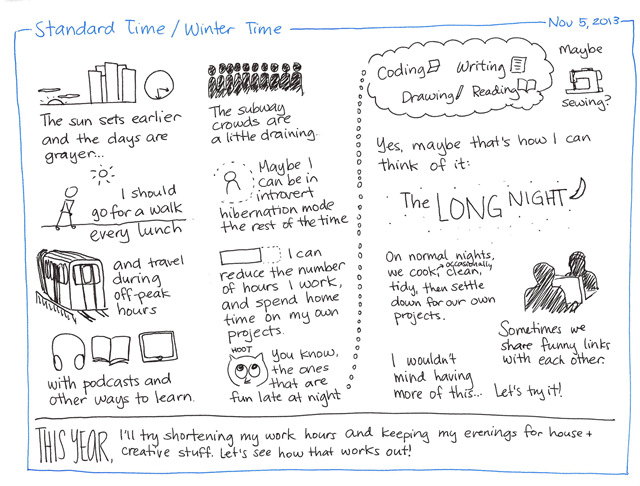 Standard Time / Winter Time
Nov 5, 2013
The sun sets earlier
and the days are
grayer...
I should
go for a walk
every lunch
and travel
during
off-peak
hours
with podcasts and
other ways to learn.
The subway
crowds are
a little draining.
Maybe I
can be in
introvert
hibernation mode
the rest of the time
I can
reduce the number
of hours I work,
and spend home
time on my own
projects.
HOOT
You know,
the ones
that are
fun late at night
Coding
Writing
Drawing
Reading
Maybe
sewing?
Yes, maybe that's how I can
think of it:
The LONG NIGHT
On normal nights,
we cook, occasionally clean,
tidy, then settle
down for our own
projects.
Sometimes we
share funny links
with each other.
I wouldn't
mind having
more of this...
Let's try it!
THIS YEAR, I'll try shortening my work hours and keeping my evenings for house +
creative stuff. Let's see how that works out!